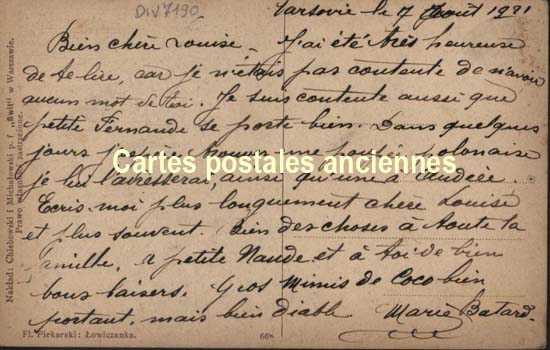 DIV7190
Varsovie le 7 Août 1921
Bien chère Louise _ J'ai été très heureuse
de te lire, car je n'étais pas contente de n'avoir
aucun mot de toi. Je suis contente aussi que
petite Fernande se porte bien. Dans quelques
jours je pense trouver une poupée polonaise
je lui l'adresserai, ainsi qu'une à Andrée.
Ecris-moi plus longuement chère Louise
et plus souvent. Bien des choses à toute ta
famille, à petite Naude et à toi de bien
bons baisers. Gros Mimis de Coco bien
portant, mais bien diable Marie Batard.
Cartes postales anciennes
Nakład: Chlebowski i Michałowski p. f. „Świt" w Warszawie.
Prawo własności zastrzeżone.
Fl. Piekarski: Łowiczanka.
668